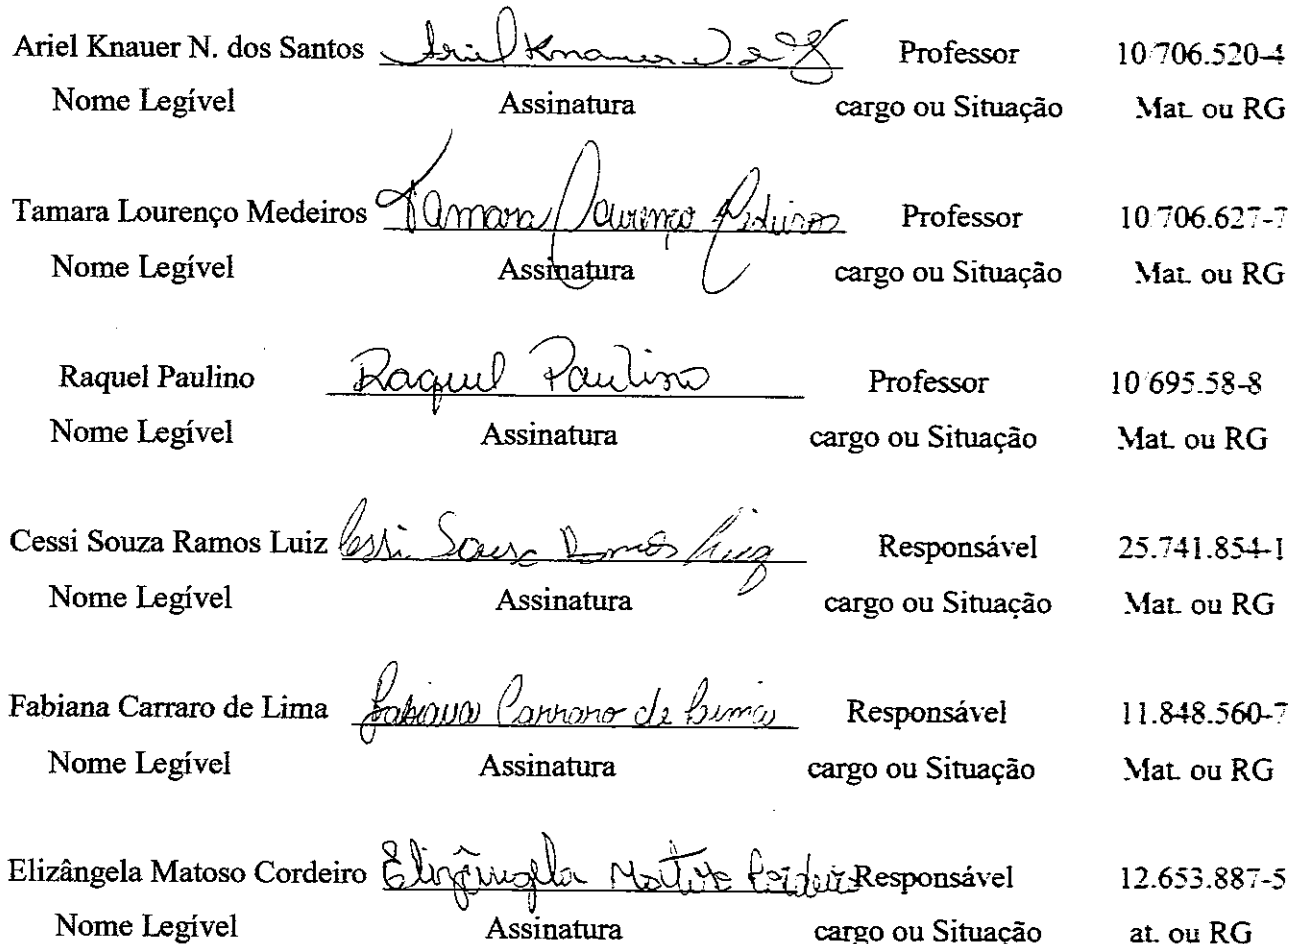 Ariel Knauer N. dos Santos Ariel Knauer N. d S Professor 10/706.520-4
Nome Legível Assinatura cargo ou Situação Mat. ou RG
Tamara Lourenço Medeiros Tamara Lourenço Medeiros Professor 10/706.627-7
Nome Legível Assinatura cargo ou Situação Mat. ou RG
Raquel Paulino Raquel Paulino Professor 10/695.58-8
Nome Legível Assinatura cargo ou Situação Mat. ou RG
Cessi Souza Ramos Luiz Cessi Souza Ramos Luiz Responsável 25.741.854-1
Nome Legível Assinatura cargo ou Situação Mat. ou RG
Fabiana Carraro de Lima Fabiana Carraro de Lima Responsável 11.848.560-7
Nome Legível Assinatura cargo ou Situação Mat. ou RG
Elizângela Matoso Cordeiro Elizângela Matoso Cordeiro Responsável 12.653.887-5
Nome Legível Assinatura cargo ou Situação at. ou RG